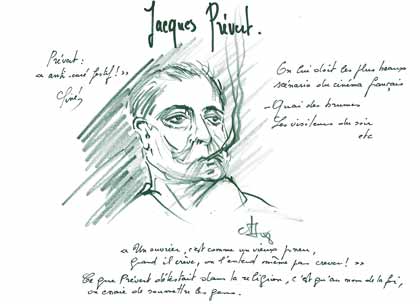 Jacques Prévert.
Prévert :
« anti curé festif ! »
Siné
On lui doit les plus beaux
scénario du cinéma français
- Quai des brumes
Les visiteurs du soir
etc
« Un ouvrier, c'est comme un vieux pneu,
Quand il crève, on l'entend même pas crever ! »
Ce que Prévert détestait dans la religion, c'est qu'au nom de la foi,
on essaie de soumettre les gens.